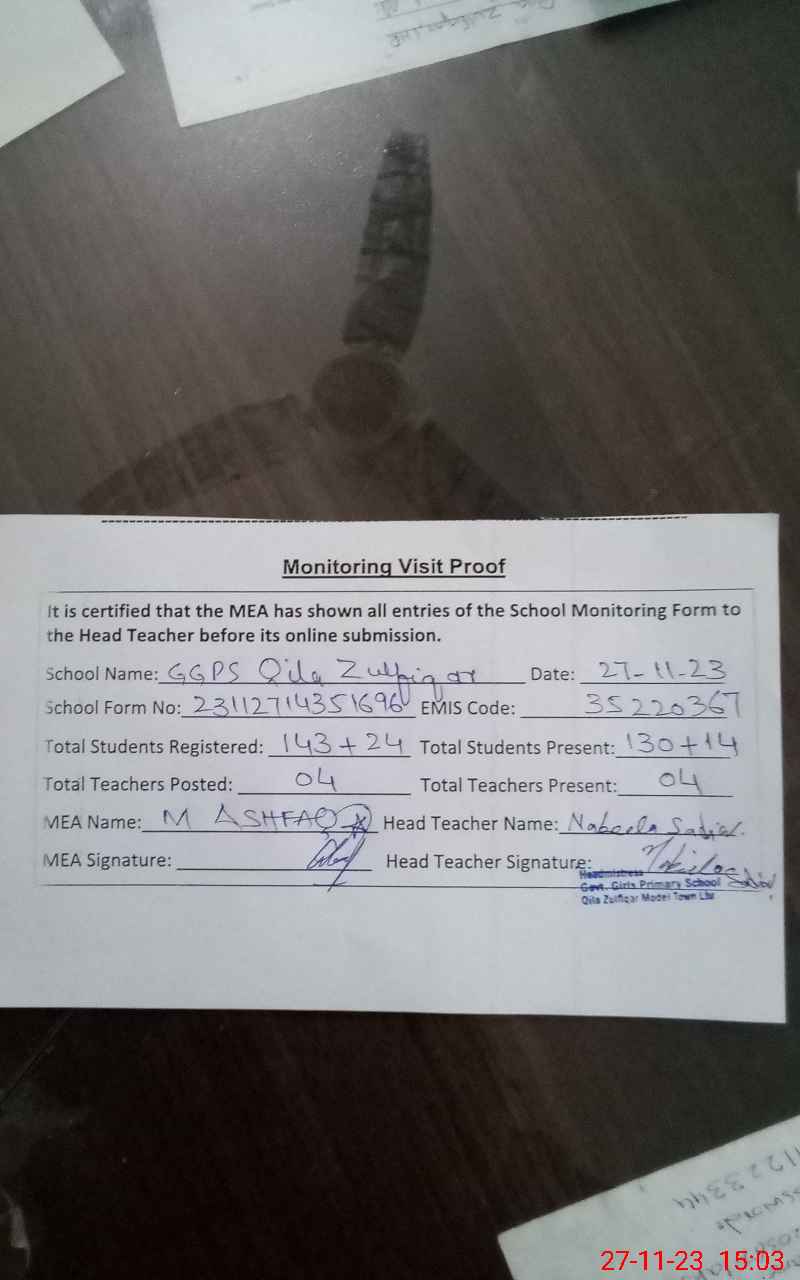 Monitoring Visit Proof
It is certified that the MEA has shown all entries of the School Monitoring Form to
the Head Teacher before its online submission.
School Name: GGPS Qila Zulfiqar Date: 27-11-23
School Form No: 23112714351696 EMIS Code: 35220367
Total Students Registered: 143+24 Total Students Present: 130+14
Total Teachers Posted: 04 Total Teachers Present: 04
MEA Name: M ASHFAQ Head Teacher Name: Nabeela Sadiq
MEA Signature: Head Teacher Signature:
Headmistress
Govt. Girls Primary School
Qila Zulfiqar Model Town Lhr
11223344
27-11-23 15:03